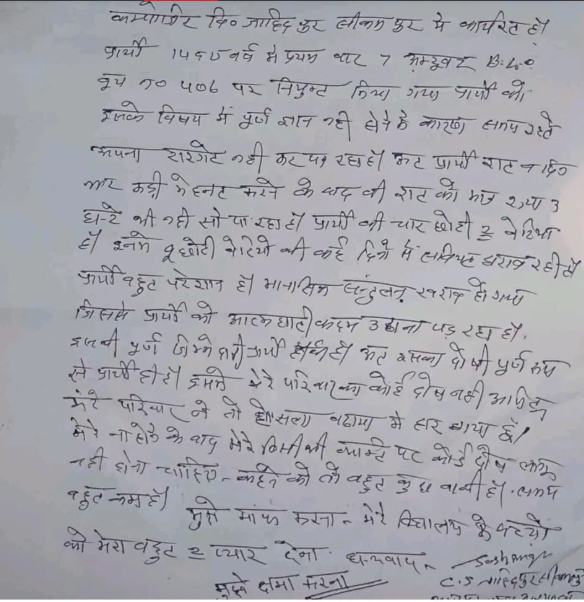 कम्पोजिट वि० जाहिदपुर सीकमपुर मे कार्यरत हूँ।
प्रार्थी वर्ष में प्रथम बार 7 अक्टूबर B.L.O
बूथ no 406 पर नियुक्त किया गया प्रार्थी को
इसके विषय में पूर्ण ज्ञान नही होने के कारण समय रहते
अपना टारगेट नही कर पा रहा हूँ। प्रार्थी रात व दिन
कड़ी मेहनत करने के बाद भी रात को मात्र 2 या 3
घन्टे भी नही सो पा रहा हूँ प्रार्थी की चार छोटी 2 बेटिया
हैं। इनमे छोटी बेटियो की कई दिनों से तबियत खराब रही है।
प्रार्थी बहुत परेशान है। मानसिक संतुलन खराब हो गया
जिससे प्रार्थी को आत्मघाती कदम उठाना पड़ रहा है।
इसकी पूर्ण जिम्मेदारी प्रार्थी की है। इसका दोषी पूर्ण रूप
से प्रार्थी ही है। इसमे मेरे परिवार का कोई दोष नही
मेरे परिवार ने तो होसला बढाया मै हार गया हूँ।
मेरे ना होने के बाद मेरे किसी भी पर कोई दोष
नही होना चाहिए - कहने को तो बहुत कुछ बाकी है। समय
बहुत कम है। मुझे माफ करना - मेरे विद्यालय के बच्चो
को मेरा बहुत 2 प्यार देना। धन्यवाद -
मुझे क्षमा करना
C.S जाहिदपुर सीकमपुर